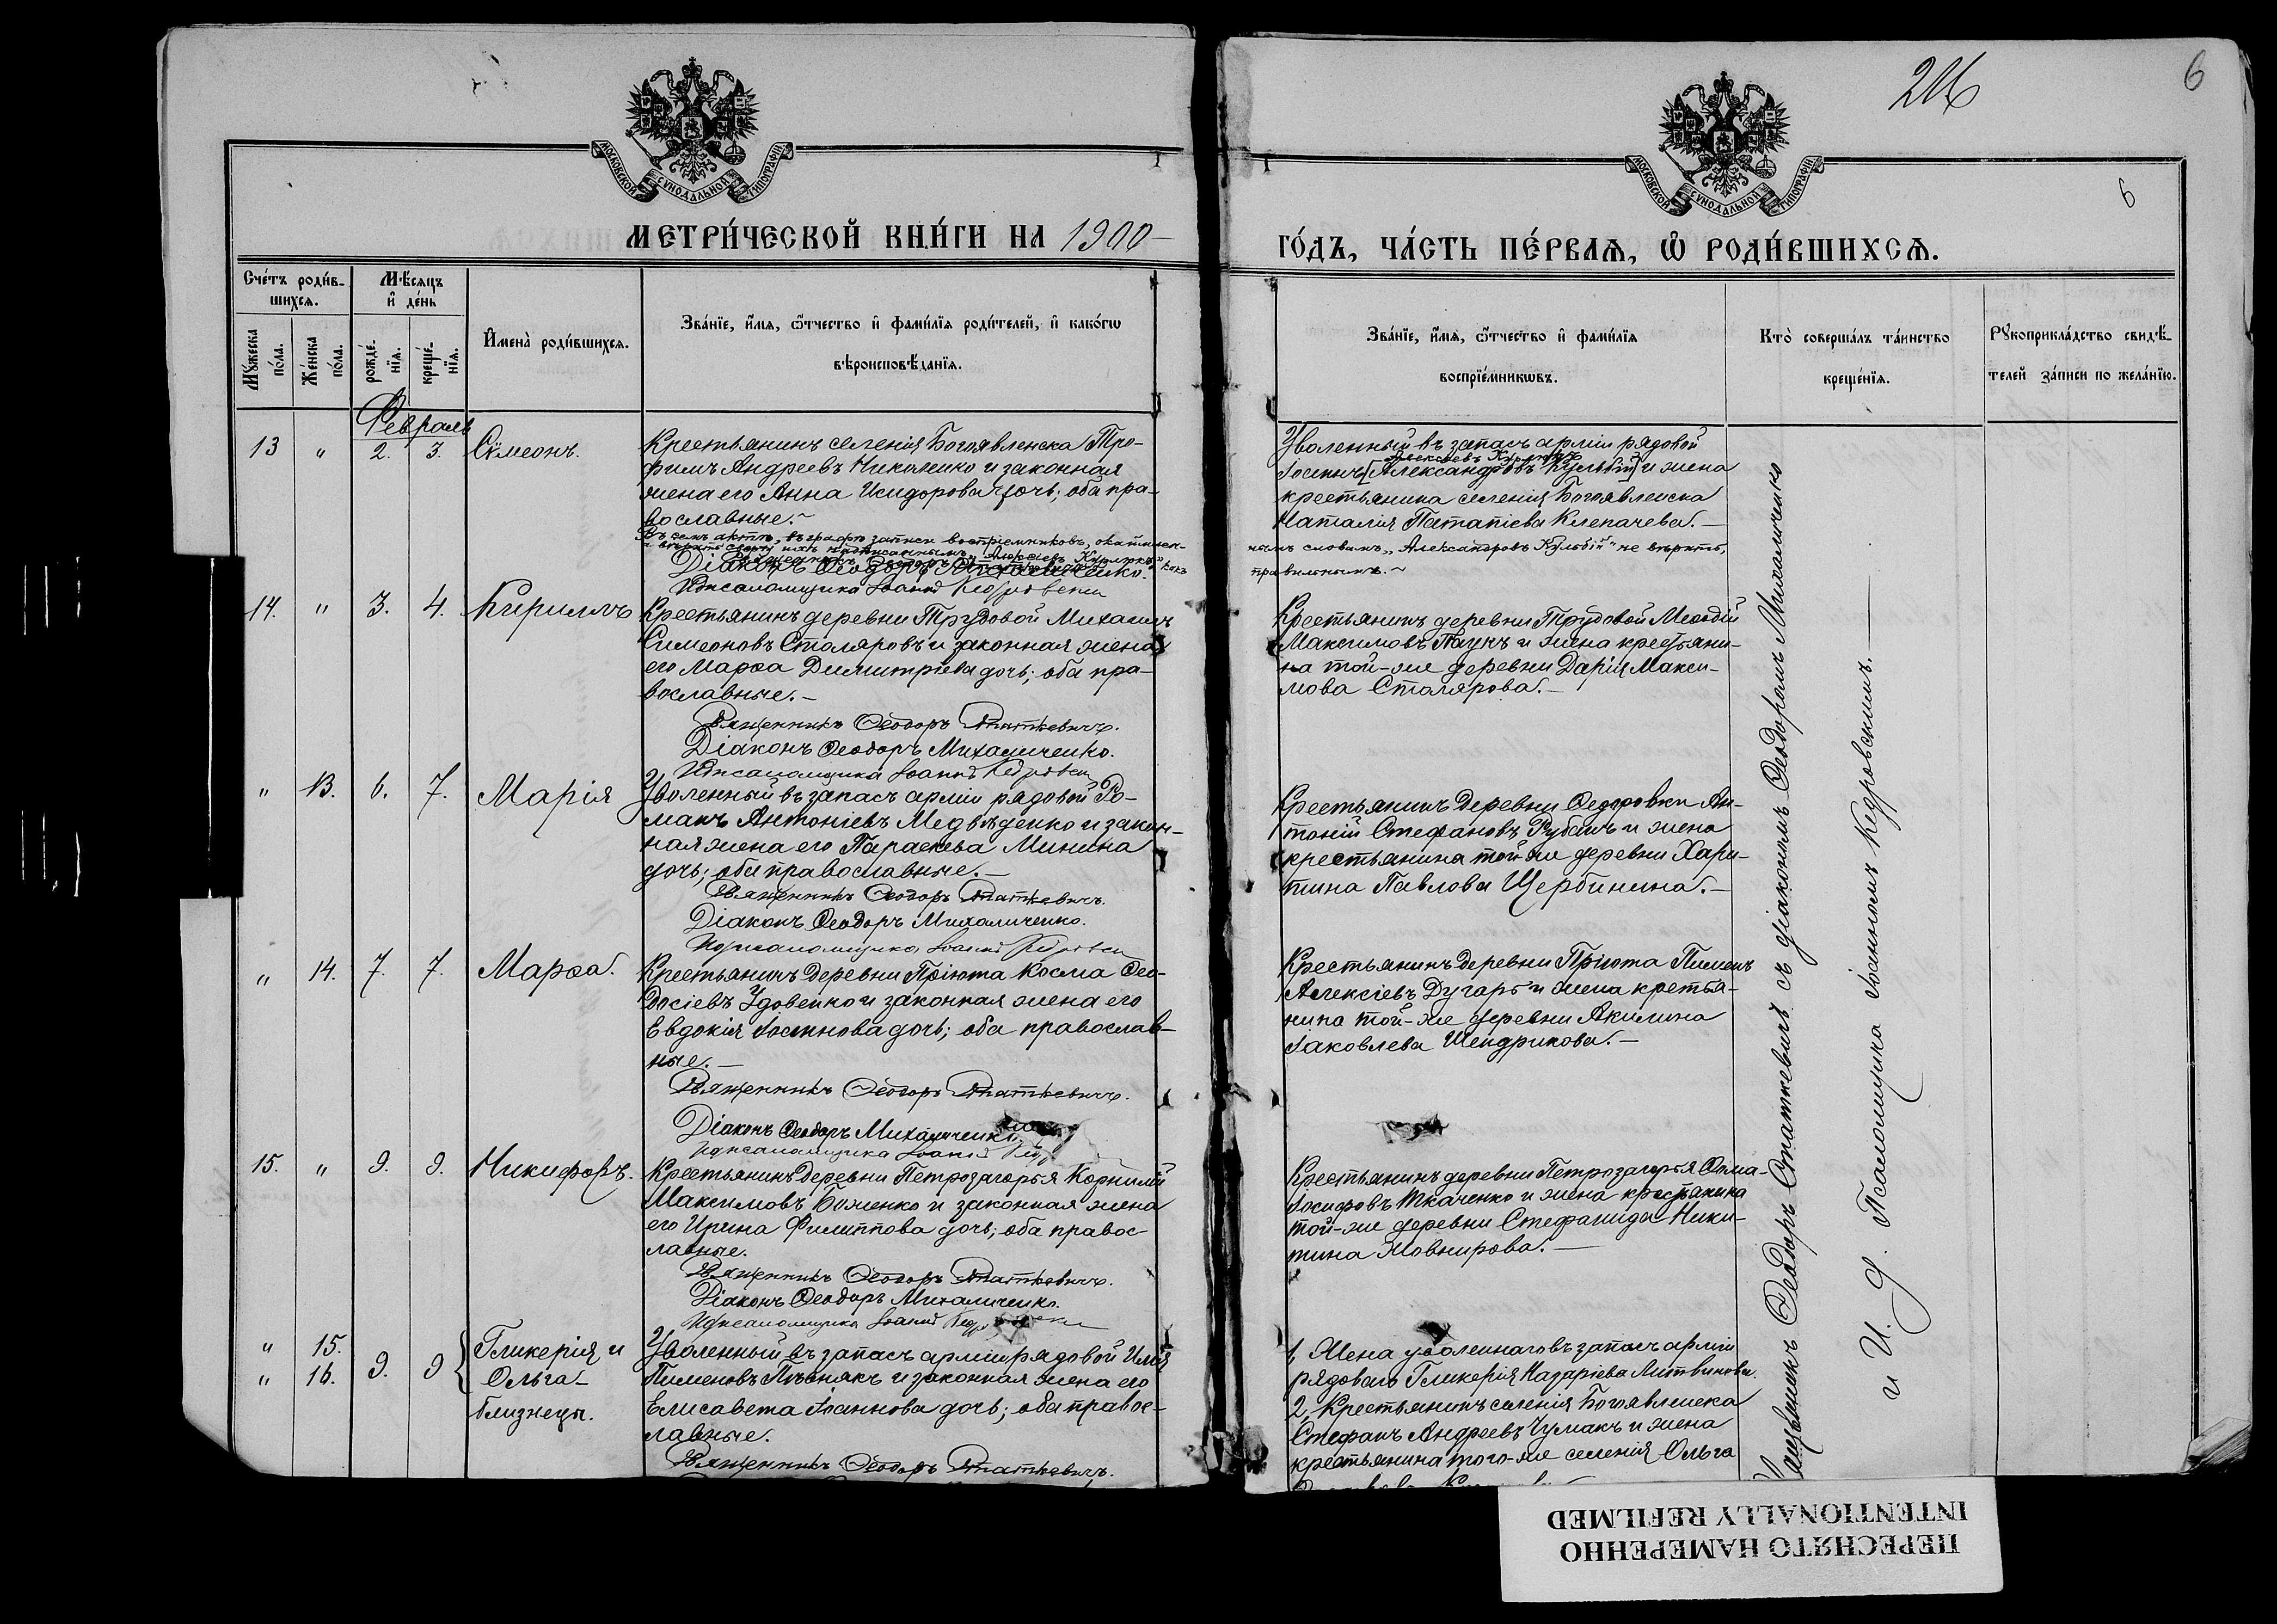 216
6
6
МОСКОВСКОЙ СѴНОДАЛЬНОЙ ТИПОГРАФІИ
МОСКОВСКОЙ СѴНОДАЛЬНОЙ ТИПОГРАФІИ
МЕТРИ́ЧЕСКОЙ КНИ́ГИ НА 1900
ГО́ДЪ, ЧА́СТЬ ПЕ́РВАѦ, Ѽ РОДИ́ВШИХСѦ.
Сче́тъ роди́в-
шихсѧ.
Мѣ́сяцъ
и҆ де́нь
Мꙋжеска
по́ла.
Же́нска
по́ла.
рожде́-
нїѧ.
креще́-
нїѧ.
И҆мена̀ роди́вшихсѧ.
Зва́нїе, и҆́мѧ, ѻ҆́тчество и҆ фами́лїѧ роди́телей, и҆ како́гѡ
вѣроисповѣ́данїѧ.
Зва́нїе, и҆́мѧ, ѻ҆́тчество и҆ фами́лїѧ
воспрїе́мникѡвъ.
Кто̀ соверша́лъ та́инство
креще́нїѧ.
Рꙋкоприкла́дство свидѣ́-
телей за́писи по жела́нїю.
Февраль
13 " 2. 3. Сѵмеонъ.
Крестьянинъ селенія Богоявленска Тро-
фимъ Андреевъ Николенко и законная
жена его Анна Исидорова дочь; оба пра-
вославные.
Въ семъ актѣ, въ графѣ записи воспріемниковъ,
Діаконъ Ѳеодоръ Михаличенко.
И д псаломщика Іоаннъ Кедровскій
Уволенный въ запасъ арміи рядовой
Алексѣевъ
[Александровъ Кульбій] и жена
крестьянина селенія Богоявленска
Наталія Патапіева Клепачева.
нымъ словамъ „Александровъ Кульбій" не вѣрить,
правильнымъ.
14. " 3. 4. Кириллъ
Крестьянинъ деревни Трудовой Михаилъ
Симеоновъ Столяровъ и законная жена
его Марѳа Димитріева дочь; оба пра-
вославные.
Священникъ Ѳеодоръ Статкевичъ.
Діаконъ Ѳеодоръ Михаличенко.
И д псаломщика Іоаннъ Кедровскій
Крестьянинъ деревни Трудовой Меѳодій
Максимовъ Паукъ и жена крестьяни-
на той-же деревни Дарія Макси-
мова Столярова.
" 13. 6. 7. Марія
Уволенный въ запасъ арміи рядовой Ро-
манъ Антоніевъ Медвѣденко и закон-
ная жена его Параскева Минина
дочь; оба православные.
Священникъ Ѳеодоръ Статкевичъ.
Діаконъ Ѳеодоръ Михаличенко.
И д псаломщика Іоаннъ Кедровскій
Крестьянинъ деревни Ѳедоровки Ан-
тоній Стефановъ Рубанъ и жена
крестьянина той-же деревни Хари-
тина Павлова Щербинина.
" 14. 7. 7. Марѳа.
Крестьянинъ деревни Пріюта Косма Ѳео-
досіевъ Удовенко и законная жена его
Евдокія дочь; оба православ-
ные.
Священникъ Ѳеодоръ Статкевичъ.
Діаконъ Ѳеодоръ Михаличенко
И д псаломщика Іоаннъ
Крестьянинъ деревни Пріюта Пименъ
Алексіевъ Дугарь и жена кретья-
нина той-же деревни Акилина
Іаковлева Шендрикова.
15. " 9. 9. Никифоръ.
Крестьянинъ деревни Петрозагорья Корнилій
Максимовъ Боженко и законная жена
его Ирина Филиппова дочь; оба правос-
лавные.
Священникъ Ѳеодоръ Статкевичъ.
Діаконъ Ѳеодоръ Михаличенко.
И д псаломщика Іоаннъ
Крестьянинъ деревни Петрозагорья Ѳома
Іосифовъ Ткаченко и жена крестьянина
той-же деревни Стефанида Ники-
тина Жовнирова.
" 15.
" 16. 9. 9 { Гликерія и
Ольга
близнецы.
Уволенный въ запасъ арміи рядовой Илія
Пименовъ Пѣснякъ и законная жена его
Елисавета Іоаннова дочь; оба правос-
лавные.
Священникъ Ѳеодоръ Статкевичъ.
1, Жена уволеннаго въ запасъ арміи
рядового Гликерія Назаріева Литвинова.
2, Крестьянинъ селенія Богоявленска
Стефанъ Андреевъ Чумакъ и жена
крестьянина того-же селенія Ольга
Священникъ Ѳеодоръ Статкевичъ съ діакономъ Ѳеодоромъ Михаличенко
и И. д. Псаломщика Іоанномъ Кедровскимъ.
ПЕРЕСНЯТО НАМЕРЕННО
INTENTIONALLY REFILMED